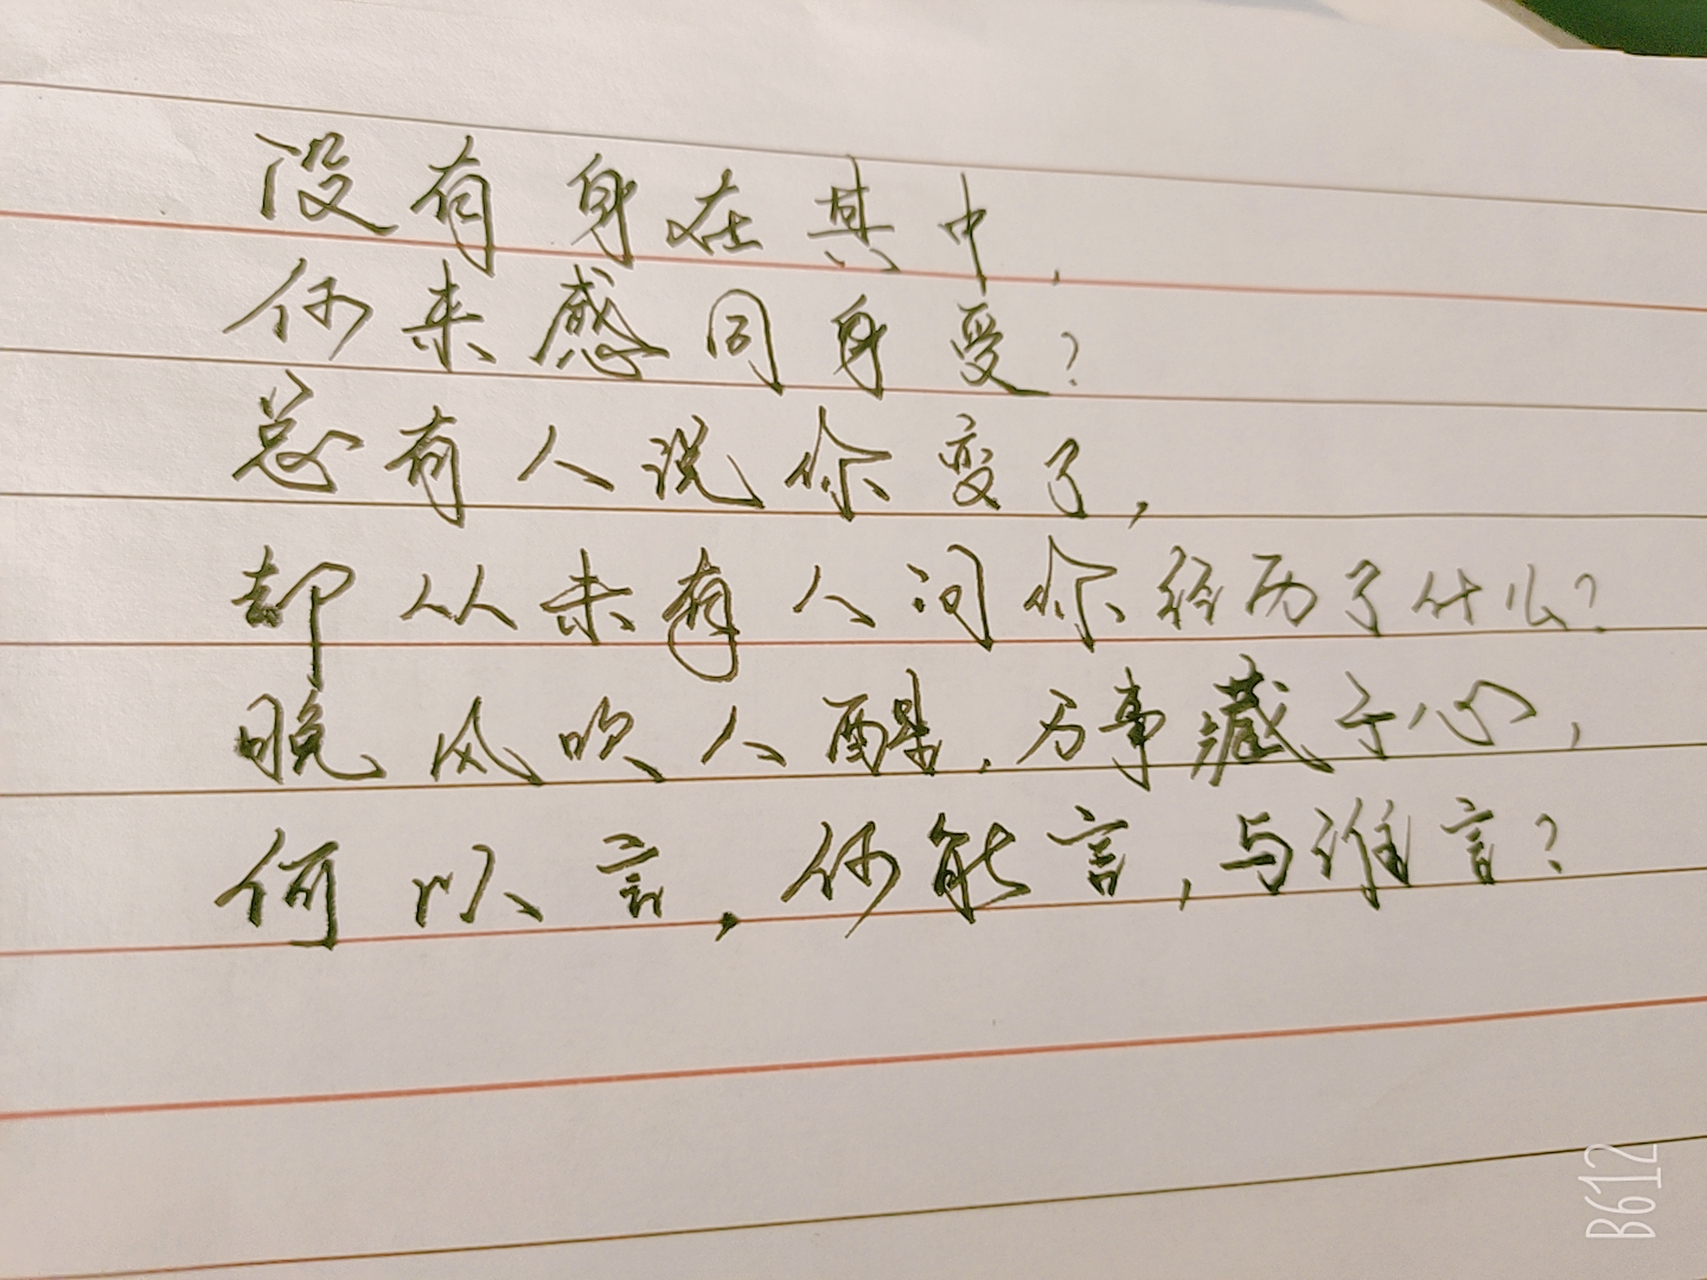 没有身在其中,
何来感同身受?
总有人说你变了,
却从未有人问你经历了什么?
晚风吹人醒,万事藏于心,
何以言,何能言,与谁言?
B612